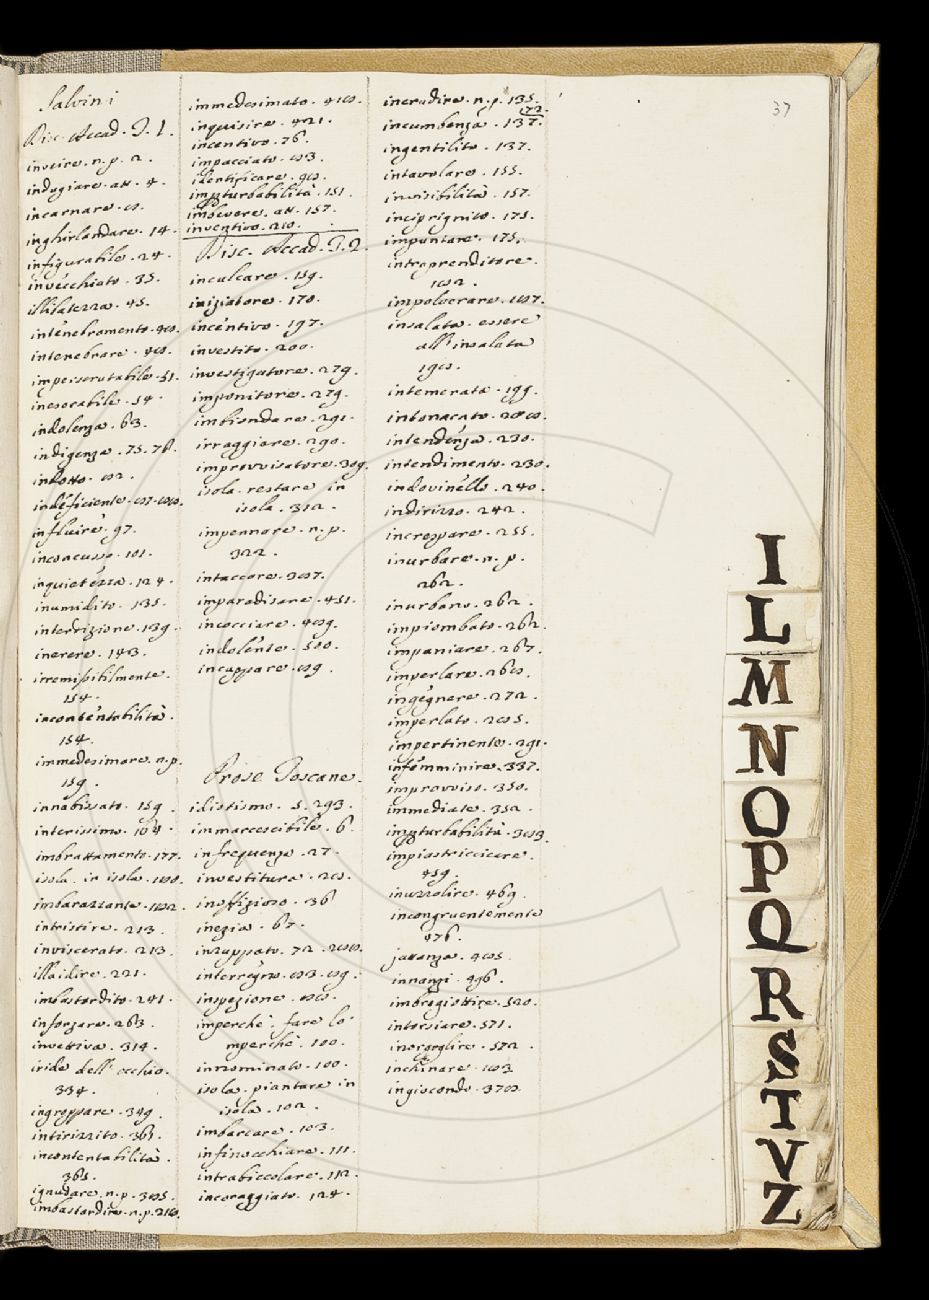 37
Salvini
Disc. Accad. T. 1.
inveire. n. p. 2.
indugiare. att. 4.
incarnare.
inghirlandare. 14.
infigurabile. 24.
invecchiato. 35.
illilatezza. 45.
intenebramento.
intenebrare.
imperscrutabile. 51.
inesorabile. 54.
indolenza. 63.
indigenza. 75. 76.
indotto.
indeficiente.
influire. 97.
inconcusso. 101.
inquietezza. 124.
inumidito. 135.
interdizione. 139.
inerere. 143.
irremisibilmente.
154.
incontentabilità.
154.
immedesimare. n. p.
159.
innabissato. 159.
interissimo. 164.
imbrattamento. 177.
isola. in isola.
imbarazzante.
intristire. 213.
inviscerato. 213.
illaidire. 221.
imbastardito. 241.
inforzare. 263.
invettiva. 314.
iride dell' occhio.
334.
ingroppare. 349.
intirizzito. 361.
incontentabilità.
361.
ignudare. n. p.
imbastardire. n. p. 210.
immedesimato.
inquisire. 421.
incentivo. 76.
impacciato.
identificare.
imperturbabilità. 151.
imbevere. att. 157.
inventivo. 210.
Disc. Accad. T. 2.
inculcare. 159.
iniziatore. 170.
incentivo. 197.
investito. 200.
investigatore. 279.
imponitore. 279.
imbiondare. 291.
irraggiare. 290.
improvvisatore. 309.
isola. restare in
isola. 312.
impennare. n. p.
322.
intaccare.
imparadisare. 451.
incocciare.
indolente. 500.
incappare.
Prose Toscane.
idiotismo. 5. 293.
immarcescibile. 6.
infrequenza. 27.
investitura.
inoffizioso. 36
inezia. 67.
inzuppato. 72.
interregno.
inspezione.
imperchè. fare lo
mperchè. 100.
innominato. 100.
isola. piantare in
isola. 102.
imbarcare. 103.
infinocchiare. 111.
intrabiccolare. 112.
incoraggiato. 124.
inerudire. n. p. 135.
172.
incumbenza. 137.
ingentilito. 137.
intavolare. 155.
invisibilità. 157.
inciprignito. 175.
impuntare. 175.
intraprenditore.
impolverare.
insalata. essere
all' insalata
intemerata. 199.
intonacato.
intendenza. 230.
intendimento. 230.
indovinello. 240.
indirizzo. 242.
increspare. 255.
inurbare. n. p.
262.
inurbano. 262.
impiombato. 262.
impaniare. 267.
imperlare.
ingegnare. 272.
imperlato.
impertinente. 291.
infemminire. 337.
improvviso. 350.
immediate. 352.
imperturbabilità.
impiastricciare.
459.
inuzzolire. 469.
incongruentemente
476.
jattanza.
innanzi. 496.
imbrogiottire. 520.
intarsiare. 571.
inorgoglire. 572.
inchinare.
ingiocondo.
I
L
M
N
O
P
Q
R
S
T
V
Z